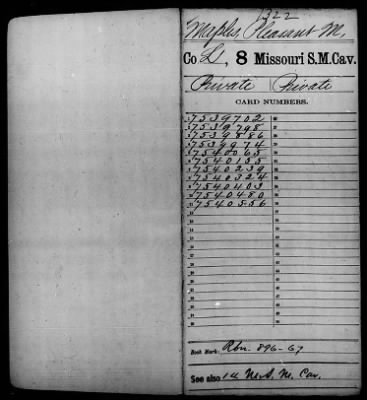 1322
Maples, Pleasant M.
Co L, 8 Missouri S.M.Cav.
Private | Private
CARD NUMBERS.
1 7539702
2 7539798
3 7539886
4 7539974
5 7540065
6 7540155
7 7540239
8 7540324
9 7540403
10 7540480
11 7540556
Book Mark: Rbn. 896-67
See also 14 M.S.M. Cav.